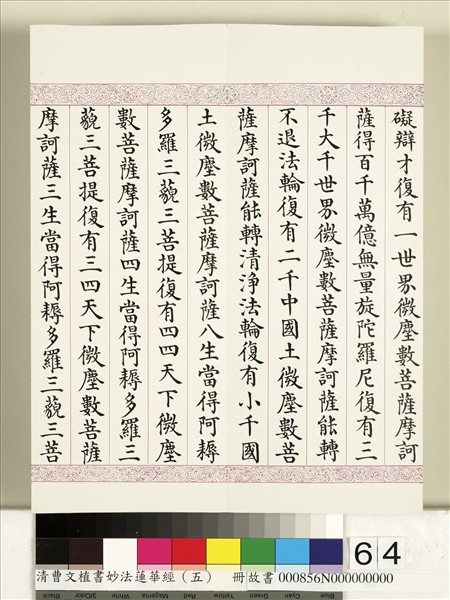 礙辯才復有一世界微塵數菩薩摩訶
薩得百千萬億無量旋陀羅尼復有三
千大千世界微塵數菩薩摩訶薩能轉
不退法輪復有二千中國土微塵數菩
薩摩訶薩能轉清淨法輪復有小千國
土微塵數菩薩摩訶薩八生當得阿耨
多羅三藐三菩提復有四四天下微塵
數菩薩摩訶薩四生當得阿耨多羅三
藐三菩提復有三四天下微塵數菩薩
摩訶薩三生當得阿耨多羅三藐三菩
64
清曹文植書妙法蓮華經（五） 冊故書 000856N000000000
Black 3/Color White Magenta Red Yellow Green Cyan Blue